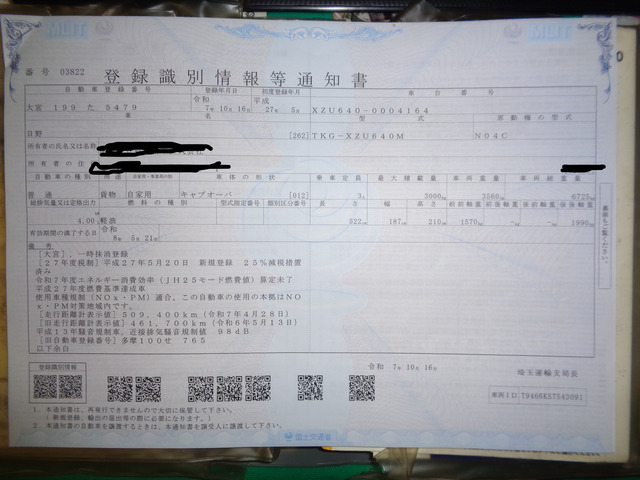 MLIT
MLIT
番号 03822 登録識別情報等通知書
自動車登録番号 登録年月日 初度登録年月 車台番号
大宮 199 た 5479 令和 7年 10月 16日 平成 27年 5月 XZU640-0004164
車名 型式 原動機の型式
日野 [262] TKG-XZU640M N04C
所有者の氏名又は名称
所有者の住
自動車の種別 用途 自家用・事業用の別 車体の形状 乗車定員 最大積載量 車両重量 車両総重量
普通 貨物 自家用 キャブオーバ [012] 3人 3000kg 3560kg 6725kg
総排気量又は定格出力 燃料の種別 型式指定番号 類別区分番号 長さ 幅 高さ 前前軸重 前後軸重 後前軸重 後後軸重
4.00 軽油 522cm 187cm 210cm 1570kg -kg -kg 1990kg
有効期間の満了する日 令和 8年 5月 21日
備考
[大宮]、一時抹消登録
[27年度税制]平成27年5月20日 新規登録 25%減税措置
済み
令和7年度エネルギー消費効率(JH25モード燃費値)算定未了
平成27年度燃費基準達成車
使用車種規制(NOx・PM)適合、この自動車の使用の本拠はNO
x・PM対策地域内です。
[走行距離計表示値]509,400km(令和7年4月28日)
[旧走行距離計表示値]461,700km(令和6年5月13日)
平成13年騒音規制車、近接排気騒音規制値 98dB
[旧自動車登録番号]多摩100せ 765
以下余白
裏面もご覧ください。
登録識別情報
令和 7年 10月 16日
埼玉運輸支局長
車両ID T9466K37543091
1. 本通知書は、再発行できませんので大切に保管して下さい。
(新規登録、輸出の届出等の際に必要になります。)
2. 本自動車を譲渡するときは、本通知書を譲受人に譲渡して下さい。
国土交通省